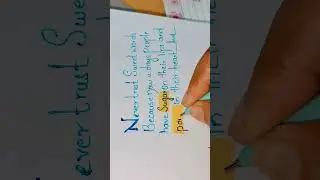 Never trust Sweet words
Because now a days people
have Sugar on their lips and
in their heart
ever trust Swe